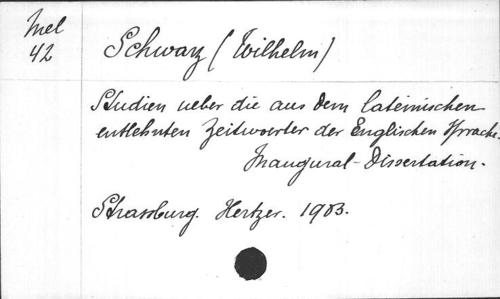 Mel
42
Schwarz (Wilhelm)
Studien ueber die aus dem lateinischen
entlehnten Zeitwoerter der Englischen Sprache.
Inaugural-Dissertation.
Strassburg. Hertzer. 1903.